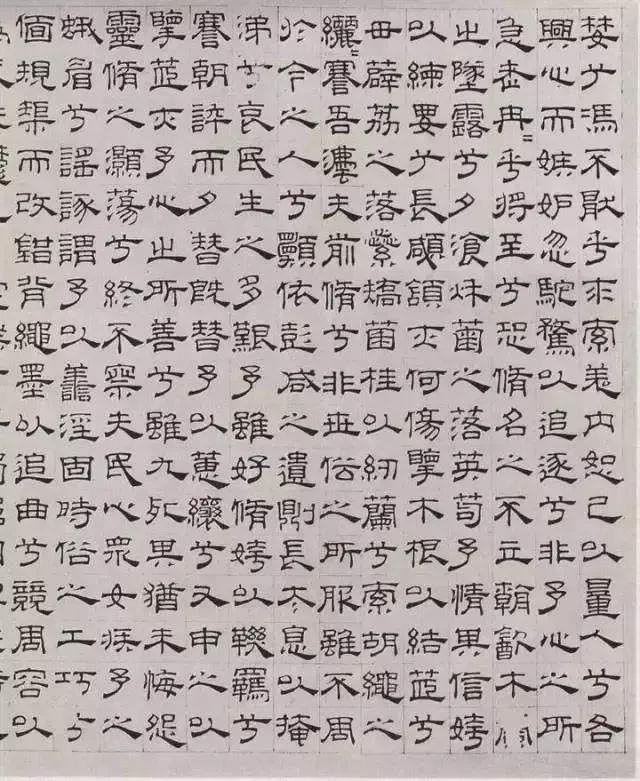 婪兮馮不猒乎求索羌内恕己以量人兮各
興心而嫉妒忽駝騖以追逐兮非予心之所
急老冉〻乎將至兮恐脩名之不立朝飲木
之墜露兮夕湌秌菊之落英苟予情其信姱
以練要兮長顑頷亦何傷擥木根以結茝兮
毌薜荔之落蘂矯菌桂以紉蘭兮索胡繩之
纚〻謇吾灋夫前脩兮非世俗之所服雖不周
於今之人兮顠依彭咸之遺則長太息以掩
涕兮哀民生之多艱予雖好脩姱以鞿羈兮
謇朝誶而夕替既替予以蕙纕兮又申之以
擥茝亦予心之所善兮雖九死其猶未悔怨
靈脩之灝蕩兮終不察夫民心衆女疾予之
蛾眉兮謠諑謂予以譱淫固時俗之工巧兮
偭規榘而改錯背繩墨以追曲兮競周容以